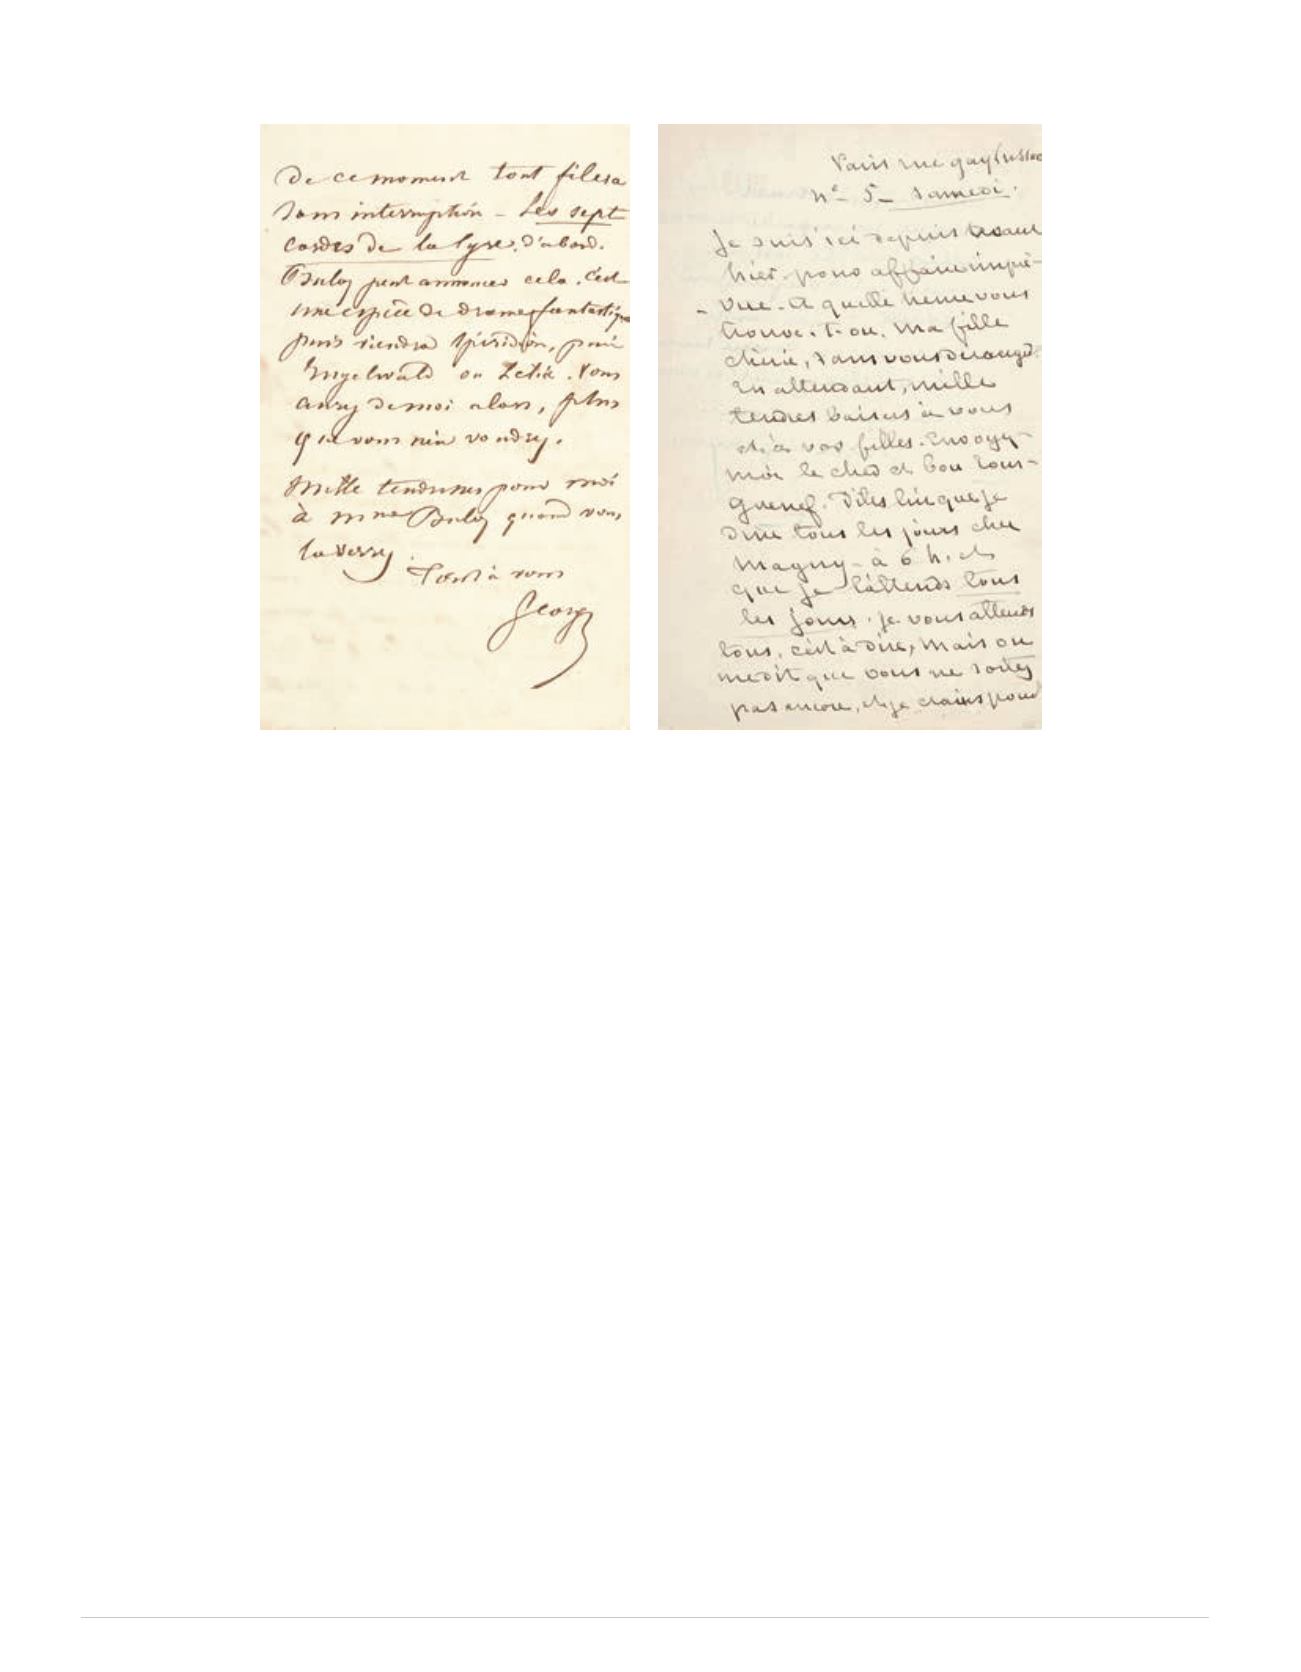 De ce moment tout filera
sans interruption – Les sept
cordes de la lyre, d'abord.
Buloz peut annoncer cela. C'est
une espèce de drame fantastique
puis viendra Spiridion, puis
Engelwald ou Lélia. Vous
aurez de moi alors, plus
que vous n'en voudrez.
Mille tendresses pour moi
à Mme Buloz quand vous
la verrez.
Tout à vous
George
Paris rue gay lussac
n° 5 – samedi.
Je suis ici depuis avant
hier. pour affaire impré-
-vue. à quelle heure vous
trouve-t-on. Ma fille
chérie, sans vous déranger.
En attendant, mille
tendres baisers à vous
et à vos filles. Envoyez-
moi le cher et bon Tour-
gueneff. Dites lui que je
dîne tous les jours chez
Magny – à 6 h. et
que je l'attends tous
les jours. je vous attends
tous, c'est à dire, mais on
me dit que vous ne sortez
pas encore, et je crains pour